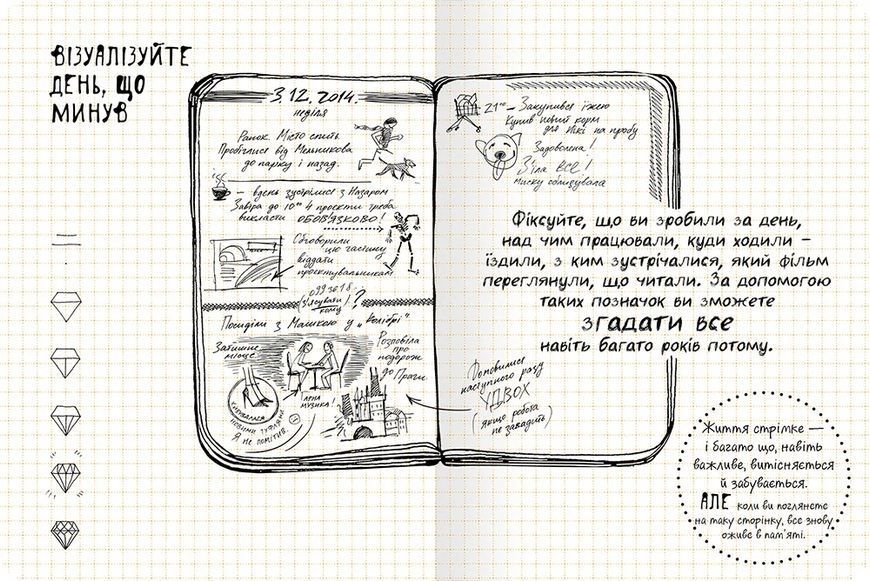 ВІЗУАЛІЗУЙТЕ
ДЕНЬ, ЩО
МИНУВ
3.12.2014.
неділя
Ранок. Місто спить.
Пробіглися від Мельникова
до парку і назад.
– вдень зустрілися з Назаром
Завтра до 10⁰⁰ 4 проєкти треба
викласти ОБОВ'ЯЗКОВО!
Обговорили
цю частину
віддати
проєктувальникам
(з'ясувати
кому)?
Посиділи з Машкою у „Колібрі"
Затишне
місце
Розповіла
про
подорож
до Праги
ЛЕНА
МУЗИКА!
НОВИМИ ТУФЛЯМИ
Я НЕ ПОМІТИВ.
21⁰⁰ – Закупився їжею
Купив новий корм
для Нікі на пробу
Задоволена!
З'їла ВСЕ!
миску облизувала
Фіксуйте, що ви зробили за день,
над чим працювали, куди ходили –
їздили, з ким зустрічалися, який фільм
переглянули, що читали. За допомогою
таких позначок ви зможете
ЗГАДАТИ ВСЕ
навіть багато років потому.
Домовились
наступного разу
УДВОХ
(якщо робота
не завадить)
Життя стрімке —
і багато що, навіть
важливе, витісняється
й забувається.
АЛЕ коли ви поглянете
на таку сторінку, все знову
оживе в пам'яті.